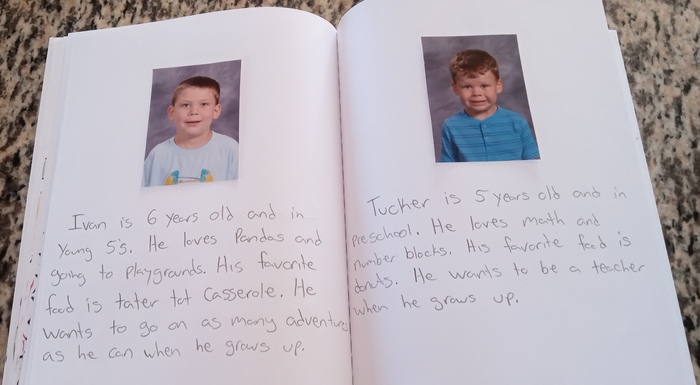 Ivan is 6 years old and in
Young 5's. He loves Pandas and
going to playgrounds. His favorite
food is tater tot Casserole. He
wants to go on as many adventures
as he can when he grows up.
Tucker is 5 years old and in
preschool. He loves math and
number blocks. His favorite food is
donuts. He wants to be a teacher
when he grows up.